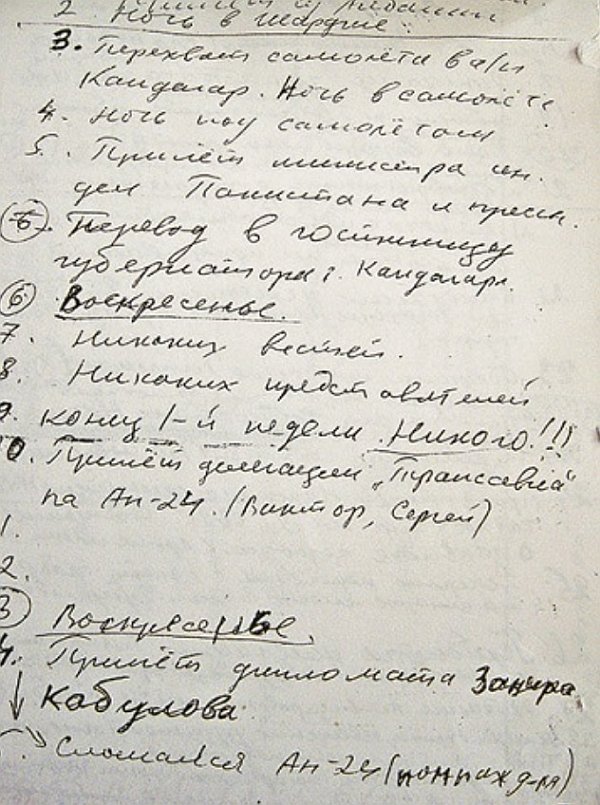 2 Ночь в Шардже.
3. Перехват самолёта в а/п
Кандагар. Ночь в самолёте
4. Ночь под самолётом
5. Прилёт министра ин.
дел Пакистана и прессы.
6. Перевод в гостиницу
губернатора г. Кандагара.
6 Воскресенье.
7. Никаких вестей.
8. Никаких представителей
9. конец 1-й недели. Никого!!!
10. Прилёт делегации „Трансавиа"
на Ан-24. (Виктор, Сергей)
1.
2.
3 Воскресенье.
4. Прилёт дипломата Замира
Кабулова
Сломался Ан-24